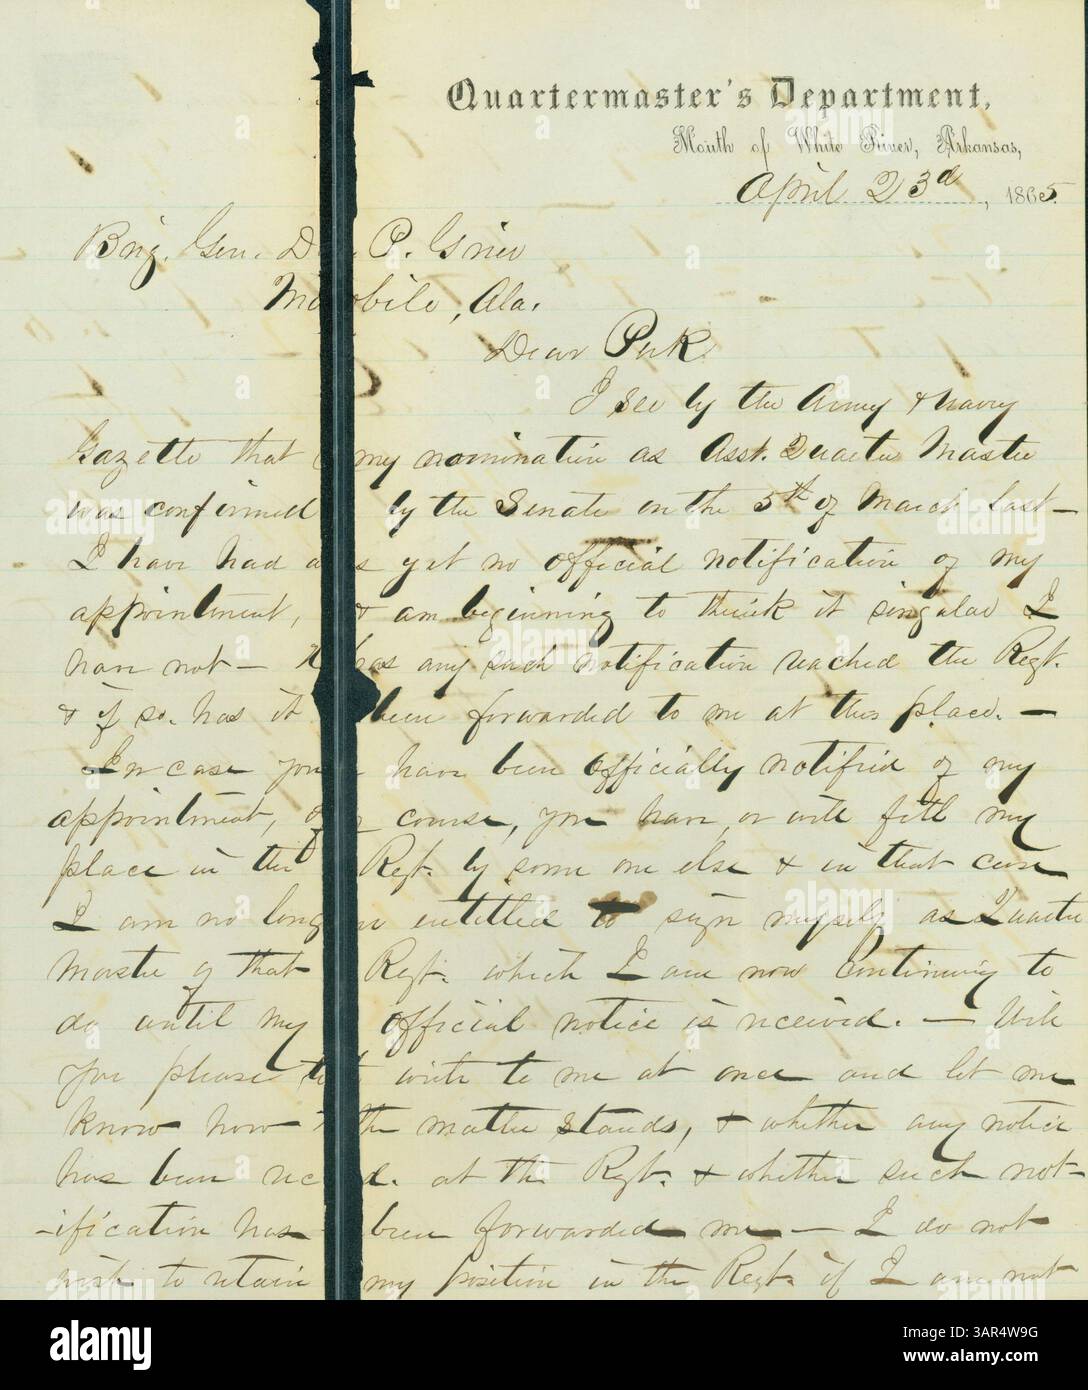 Quartermaster's Department,
Mouth of White River, Arkansas,
April 23d, 1865.
Brig. Gen. D P. Grier
Mobile, Ala.
Dear Perk
I see by the Army & Navy
Gazette that my nomination as Asst. Quarter Master
was confirmed by the Senate on the 5th of March last—
I have had as yet no official notification of my
appointment, & am beginning to think it singular I
have not — Has any such notification reached the Regt.
& if so. has it been forwarded to me at this place. —
In case you have been officially notified of my
appointment, of course, you have, or will fill my
place in the Regt. by some one else & in that case
I am no longer entitled to sign myself as Quarter
Master of that Regt. which I am now continuing to
do until my official notice is received. — Will
you please to write to me at once and let me
know how the matter stands, & whether any notice
has been recd. at the Regt. & whether such not-
-ification has been forwarded me — I do not
wish to retain my position in the Regt. if I am not
alamy
a
Image ID: 3AR4W9G
www.alamy.com